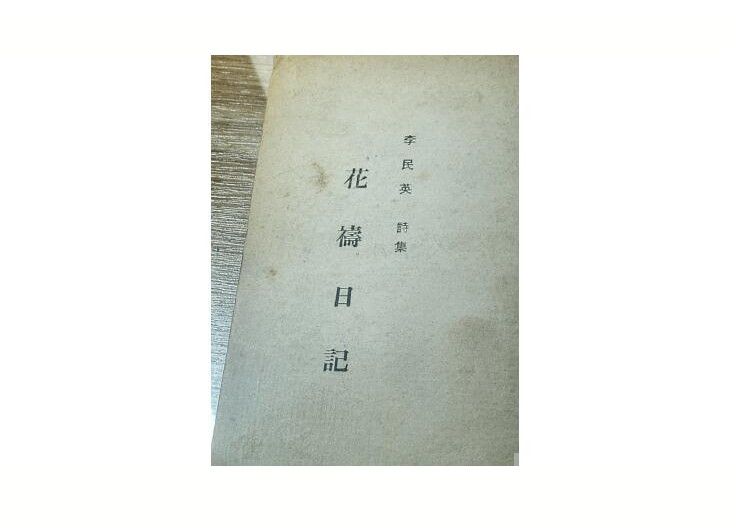 李民英 詩集
花禱日記